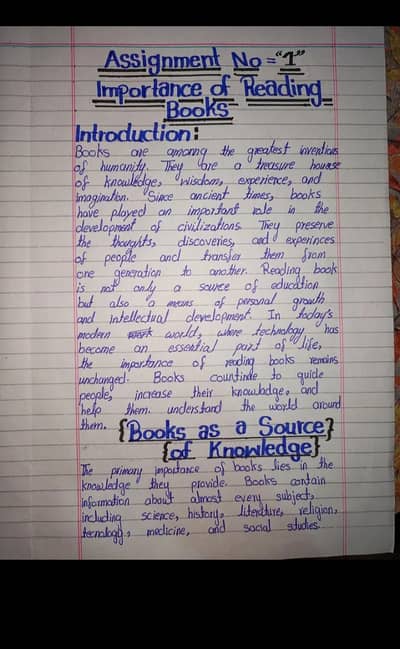 Assignment No = "1"
Importance of Reading
Books
Introduction:
Books are among the greatest inventions
of humanity. They are a treasure hourse
of knowledge, wisdom, experience, and
imagination. Since ancient times, books
have played an important role in the
development of civilizations. They preserve
the thougts, discoveries, and experinces
of people and transfer them from
one generation to another. Reading book
is not only a source of education
but also a means of personal growth
and intellectual development. In today's
modern world, where technology has
become an essential part of life,
the importance of reading books remains
unchanged. Books countinde to guide
people, increase their knowledge, and
help them. understand the world around
them.
{Books as a Source}
{of Knowledge}
The primary importance of books lies in the
knowledge they provide. Books contain
information about almost every subject,
including science, history, literature, religion,
tecnology, medicine, and social studies.